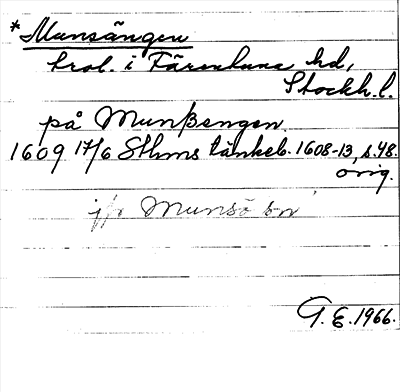 *Munsängen
trol. i Färentuna hd,
Stockh. l.
på Munßengen
1609 17/6 Sthms tänkeb. 1608-13, s. 48.
orig.
jfr Munsö sn
G. E. 1966.